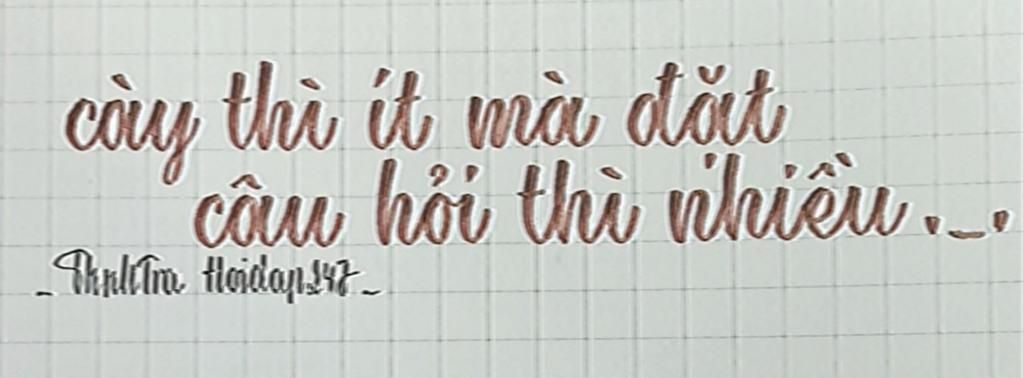 cày thì ít mà đặt
câu hỏi thì nhiều ._.
_ Hoidap247 _